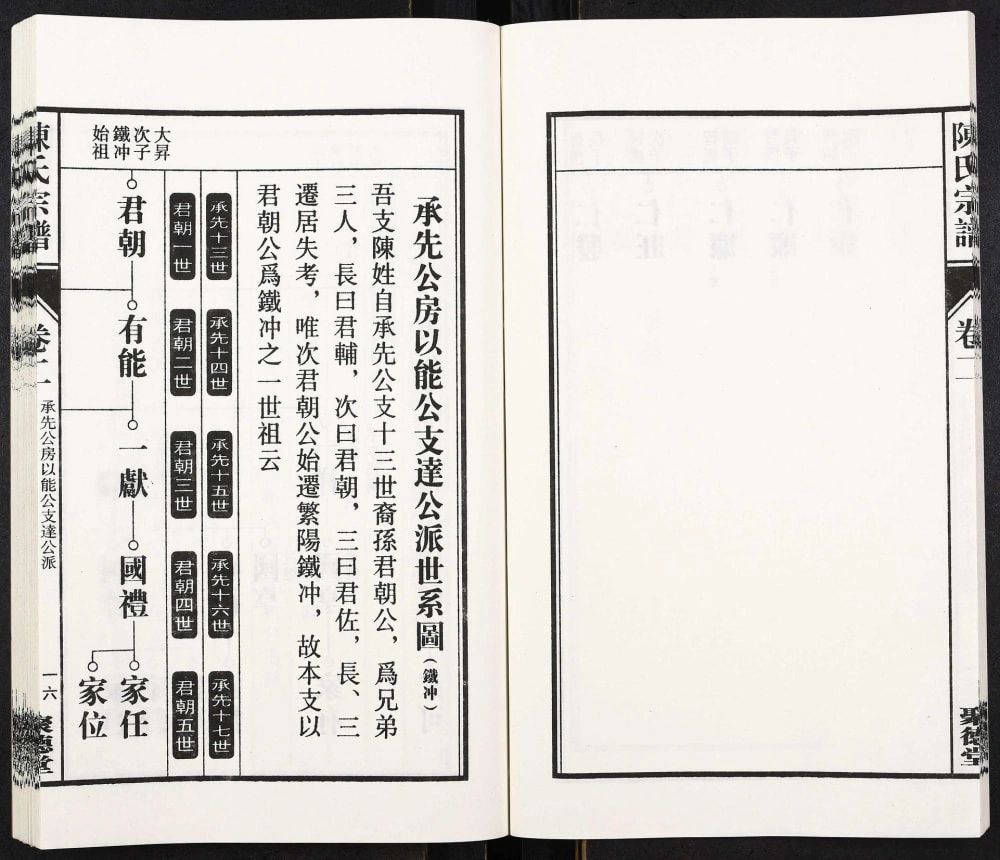 陳氏宗譜
卷二
聚德堂
承先公房以能公支達公派世系圖（鐵冲）
吾支陳姓自承先公支十三世裔孫君朝公，爲兄弟
三人，長曰君輔，次曰君朝，三曰君佐，長、三
遷居失考，唯次君朝公始遷繁陽鐵冲，故本支以
君朝公爲鐵冲之一世祖云
承先十三世
承先十四世
承先十五世
承先十六世
承先十七世
君朝一世
君朝二世
君朝三世
君朝四世
君朝五世
大昇
次子
鐵冲
始祖
君朝
有能
一獻
國禮
家任
家位
陳氏宗譜
卷二
承先公房以能公支達公派
一六
聚德堂